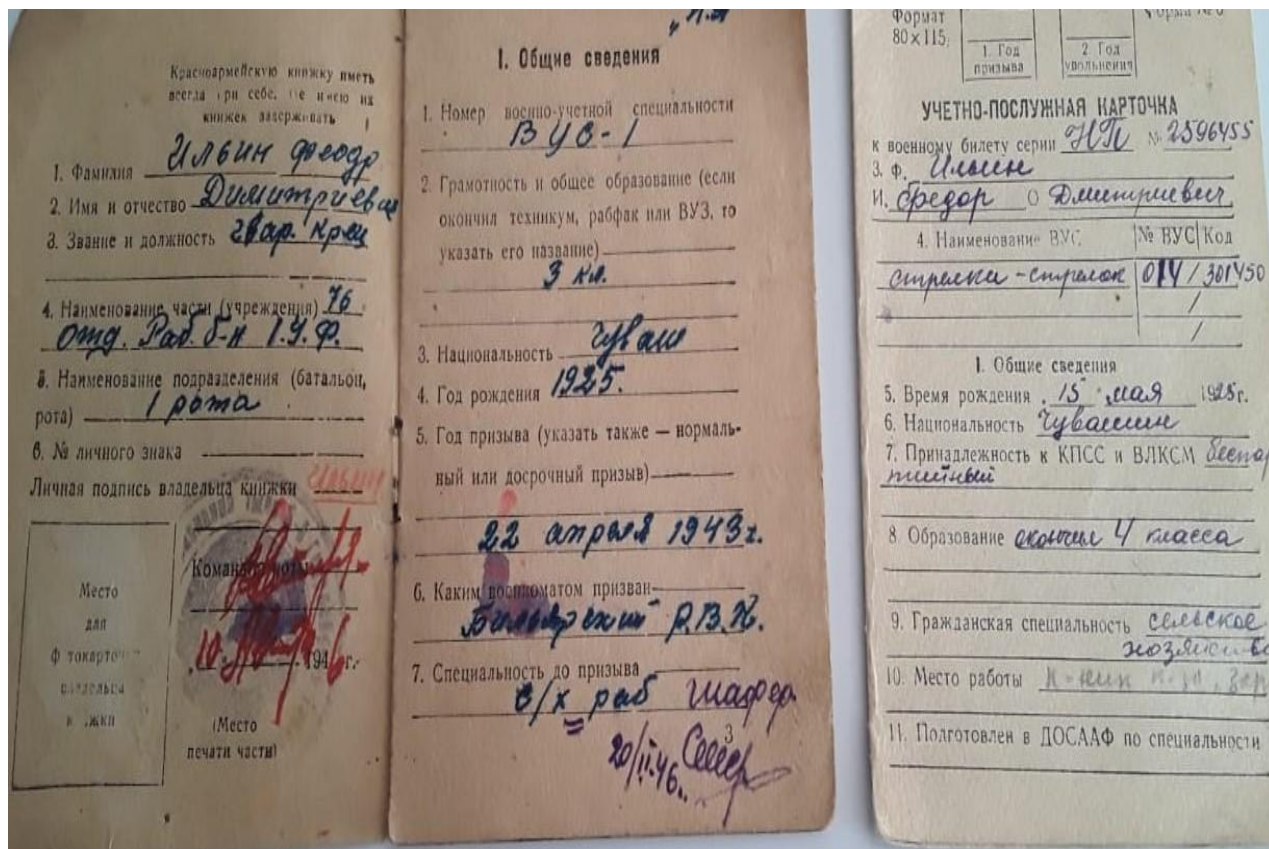 Красноармейскую книжку иметь
всегда при себе. Не имею
книжек задерживать
1. Фамилия Ильин Феодр
2. Имя и отчество Димитриевич
3. Звание и должность гвар. Крец
4. Наименование части (учреждения) 76
отд. Раб. б-н 1.У.Ф.
5. Наименование подразделения (батальон,
рота) 1 рота
6. № личного знака
Личная подпись владельца книжки Ильин
Командир роты
10 1946 г.
Место
для
фотокарточки
владельца
книжки
(Место
печати части)
1. Общие сведения
1. Номер военно-учетной специальности
ВУС-1
2. Грамотность и общее образование (если
окончил техникум, рабфак или ВУЗ, то
указать его название)
3 кл.
3. Национальность Чуваш
4. Год рождения 1925.
5. Год призыва (указать также — нормаль-
ный или досрочный призыв)
22 апреля 1943 г.
6. Каким военкоматом призван
Билярский Р.В.К.
7. Специальность до призыва
с/х раб
3
20/II.46.
Формат
80×115
1. Год
призыва
2. Год
увольнения
УЧЕТНО-ПОСЛУЖНАЯ КАРТОЧКА
к военному билету серии НП № 2596455
3. Ф. Ильин
И. Федор О Дмитриевич
4. Наименование ВУС № ВУС Код
стрелки - стрелок 014 / 301450
/
/
I. Общие сведения
5. Время рождения 15 мая 1925г.
6. Национальность Чувашин
7. Принадлежность к КПСС и ВЛКСМ беспар
тийный
8. Образование окончил 4 класса
9. Гражданская специальность сельское
хозяйство
10. Место работы
11. Подготовлен в ДОСААФ по специальности